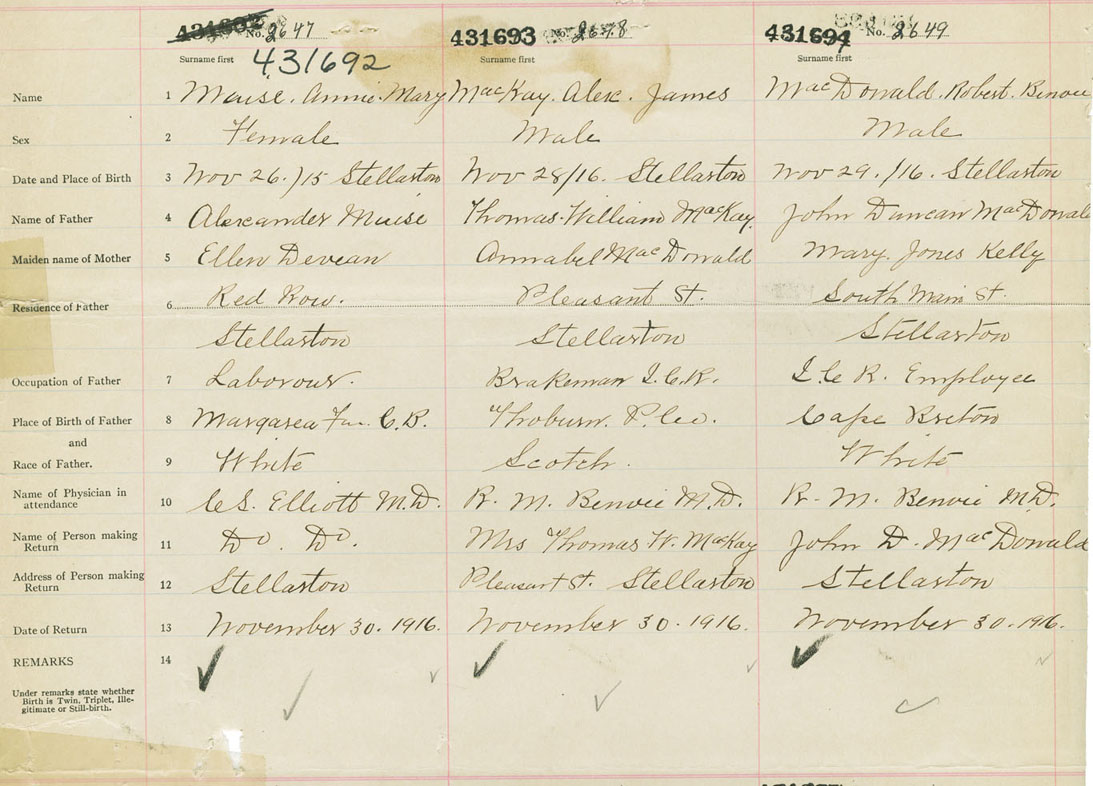 431692 No. 2647 431693 No. 2648 431694 No. 2649
Surname first 431692 Surname first Surname first
Name 1 Muise. Annie. Mary MacKay. Alex. James MacDonald. Robert. Benvie
Sex 2 Female Male Male
Date and Place of Birth 3 Nov 26./15 Stellarton Nov 28/16. Stellarton Nov 29./16. Stellarton
Name of Father 4 Alexcander Muise Thomas William MacKay. John Duncan MacDonald
Maiden name of Mother 5 Ellen Devean Annabel MacDonald Mary Jones Kelly
Residence of Father 6 Red Row. Pleasant St. South Main St.
Stellarton Stellarton Stellarton
Occupation of Father 7 Laborour. Brakeman I.C.R. I.C R. Employee
Place of Birth of Father 8 Margarea C.B. Thoburn. P. Co. Cape Breton
and
Race of Father. 9 White Scotch. White
Name of Physician in
attendance 10 C.S. Elliott M.D. R. M. Benvie M.D. R. M. Benvie M.D.
Name of Person making
Return 11 Do. Do. Mrs Thomas W. MacKay John D. MacDonald
Address of Person making
Return 12 Stellarton Pleasant St. Stellarton Stellarton
Date of Return 13 November 30. 1916. November 30. 1916. November 30. 1916.
REMARKS 14
Under remarks state whether
Birth is Twin, Triplet, Ille-
gitimate or Still-birth.